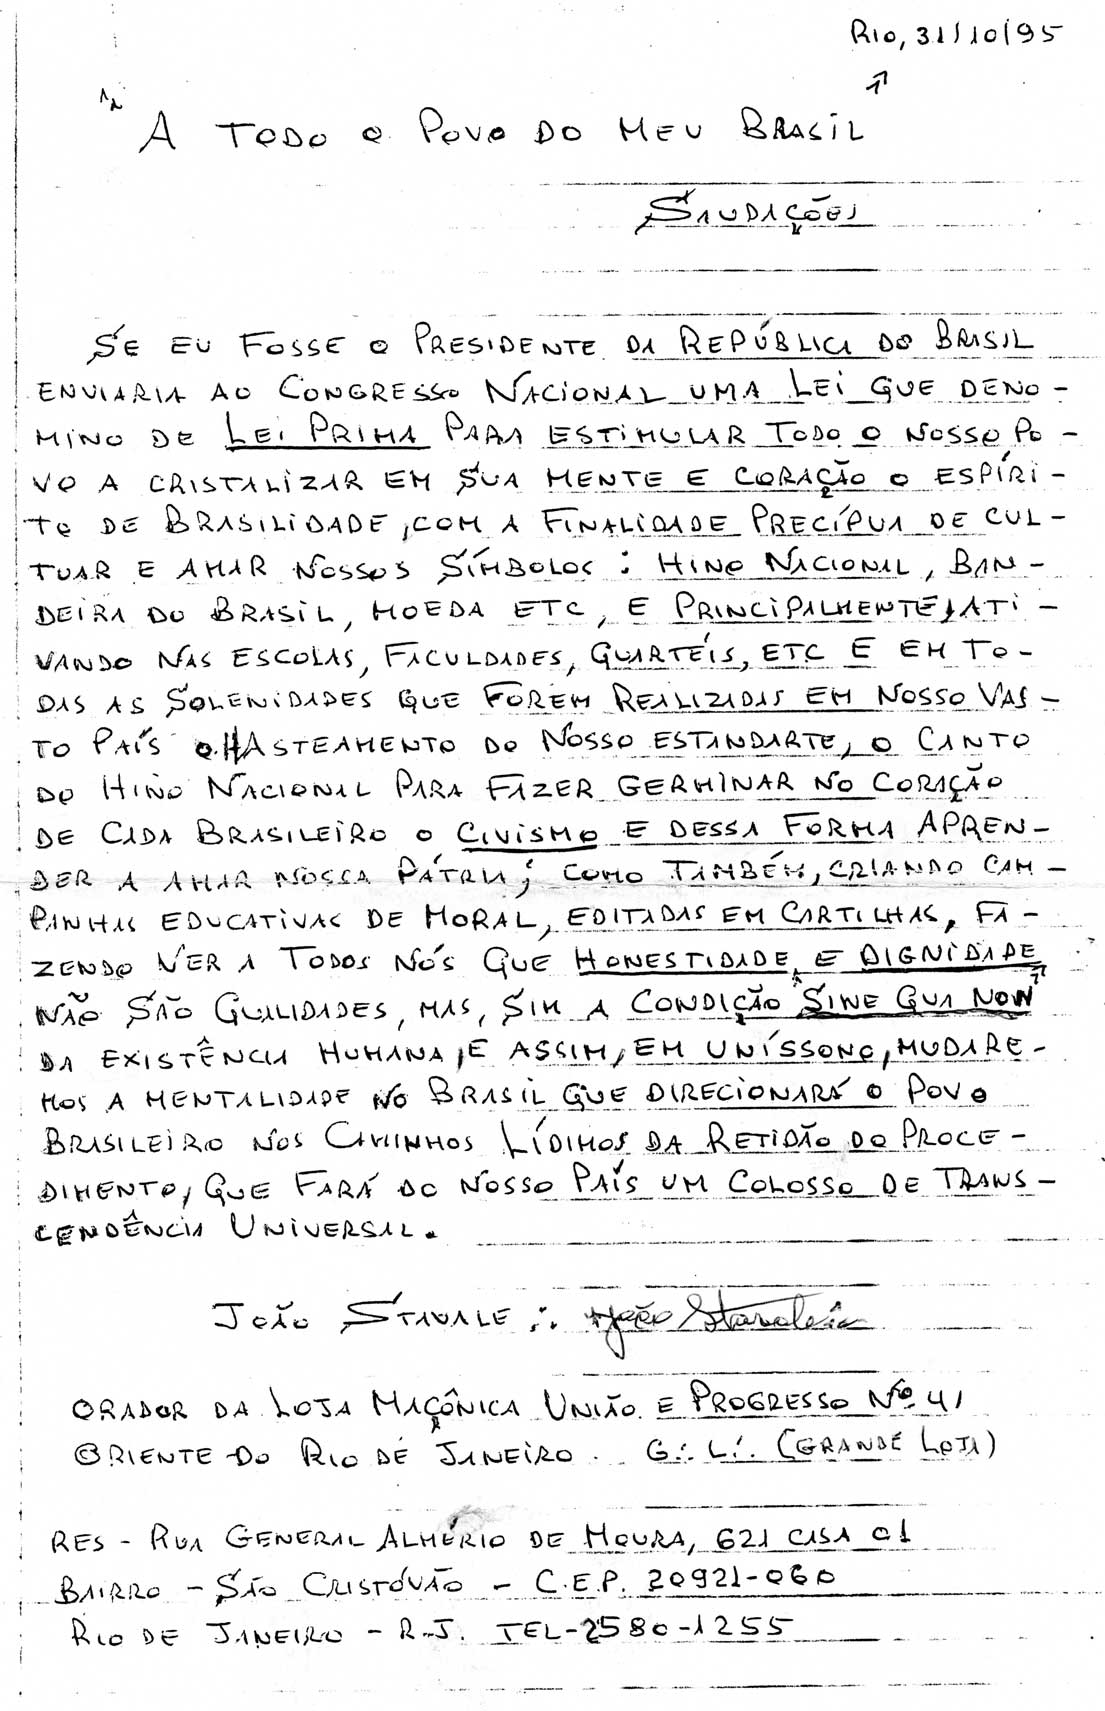 RIO, 31/10/95
A TODO O POVO DO MEU BRASIL
SAUDAÇÕES
SE EU FOSSE O PRESIDENTE DA REPÚBLICA DO BRASIL
ENVIARIA AO CONGRESSO NACIONAL UMA LEI QUE DENO-
MINO DE LEI PRIMA PARA ESTIMULAR TODO O NOSSO PO-
VO A CRISTALIZAR EM SUA MENTE E CORAÇÃO O ESPÍRI-
TO DE BRASILIDADE, COM A FINALIDADE PRECÍPUA DE CUL-
TUAR E AMAR NOSSOS SÍMBOLOS: HINO NACIONAL, BAN-
DEIRA DO BRASIL, MOEDA ETC, E PRINCIPALMENTE, ATI-
VANDO NAS ESCOLAS, FACULDADES, QUARTÉIS, ETC E EM TO-
DAS AS SOLENIDADES QUE FOREM REALIZADAS EM NOSSO VAS-
TO PAÍS O HASTEAMENTO DO NOSSO ESTANDARTE, O CANTO
DO HINO NACIONAL PARA FAZER GERMINAR NO CORAÇÃO
DE CADA BRASILEIRO O CIVISMO E DESSA FORMA APREN-
DER A AMAR NOSSA PÁTRIA; COMO TAMBÉM, CRIANDO CAM-
PANHAS EDUCATIVAS DE MORAL, EDITADAS EM CARTILHAS, FA-
ZENDO VER A TODOS NÓS QUE HONESTIDADE E DIGNIDADE
NÃO SÃO QUALIDADES, MAS, SIM A CONDIÇÃO "SINE QUA NON"
DA EXISTÊNCIA HUMANA, E ASSIM, EM UNÍSSONO, MUDARE-
MOS A MENTALIDADE NO BRASIL QUE DIRECIONARÁ O POVO
BRASILEIRO NOS CAMINHOS LÍDIMOS DA RETIDÃO DO PROCE-
DIMENTO, QUE FARÁ DO NOSSO PAÍS UM COLOSSO DE TRANS-
CENDÊNCIA UNIVERSAL.
JOÃO STAVALE ∴ João Stavale
ORADOR DA LOJA MAÇÔNICA UNIÃO E PROGRESSO Nº 41
ORIENTE DO RIO DE JANEIRO. G∴ L∴ (GRANDE LOJA)
RES - RUA GENERAL ALMÉRIO DE MOURA, 621 CASA 01
BAIRRO - SÃO CRISTÓVÃO - C.E.P. 20921-060
RIO DE JANEIRO - R.J. TEL-2580-1255